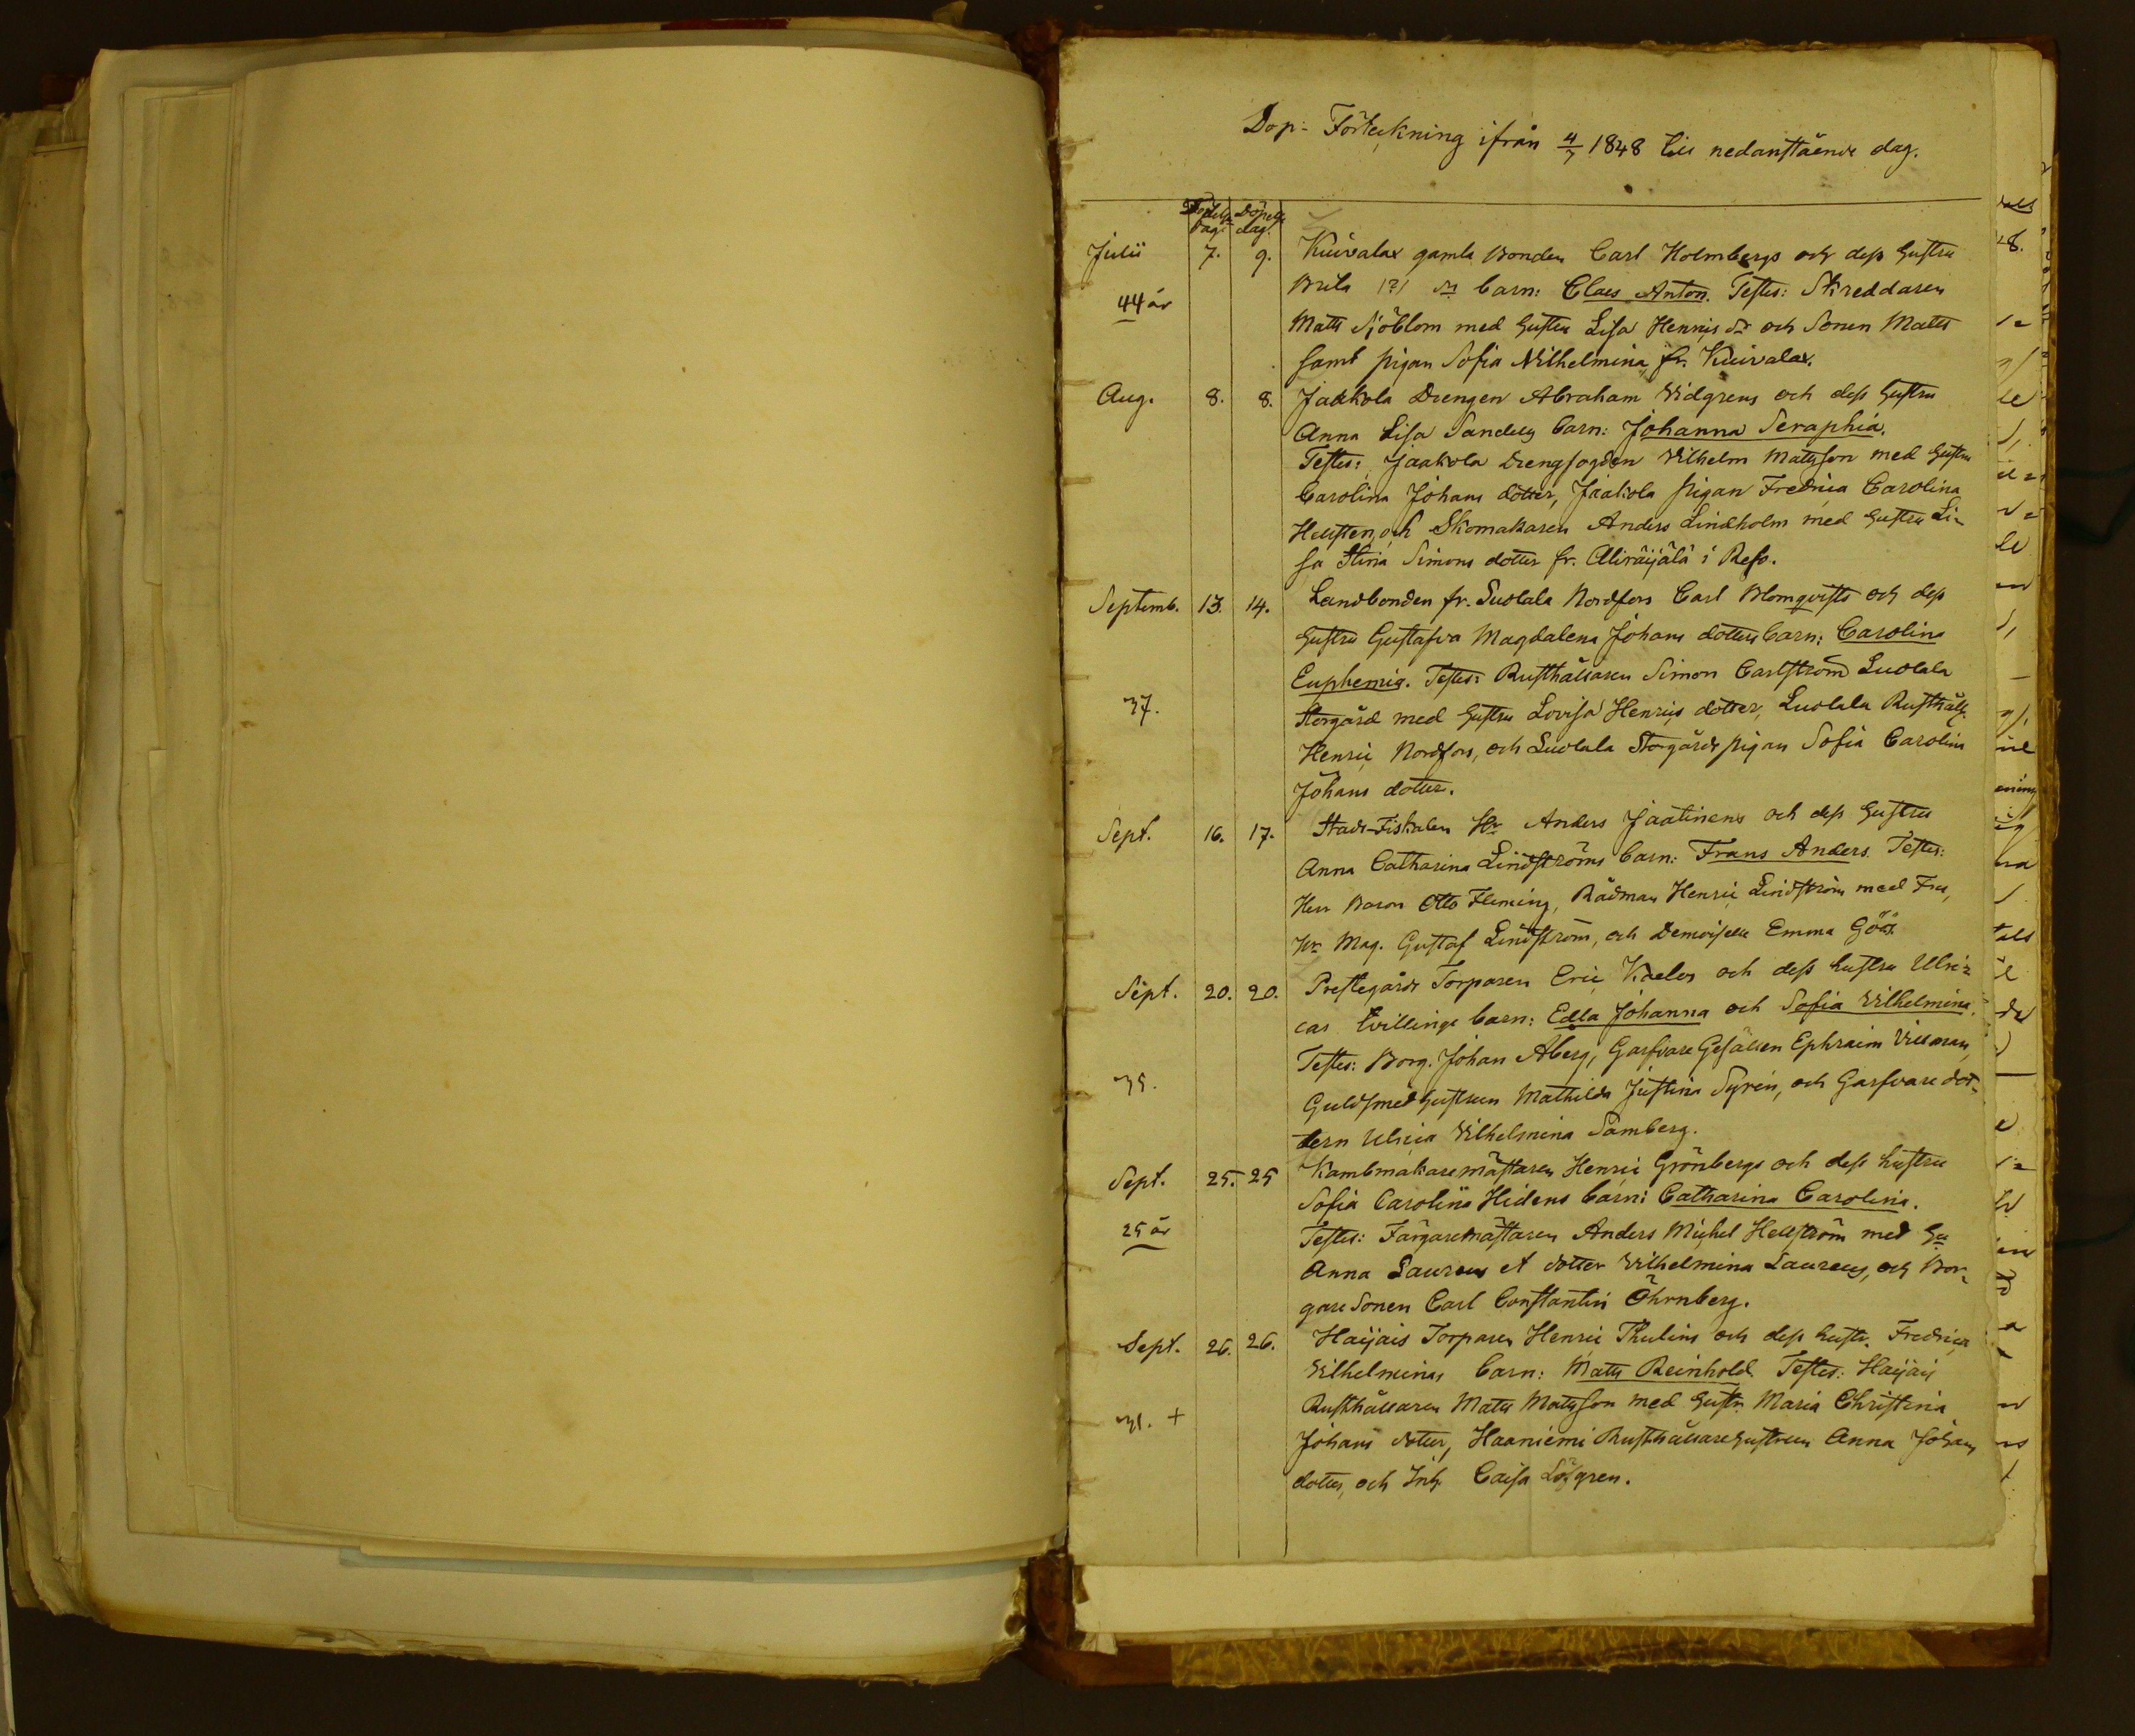 Dop-Förteckning ifrån 4/7 1848 till nedanstående dag.
Födelse dag. Döpelse dag.
Julii 7. 9. Kuivalax gamla Bonden Carl Holmbergs och dess hustru
44 år Brita (?) dr barn: Claes Anton. Testes: Skreddaren
Matts Sjöblom med hustru Lisa Henrics dr och Sonen Matts
samt pigan Sofia Wilhelmina fr. Kuivalax.
Aug. 8. 8. Jaakola Drengen Abraham Vidgrens och dess hustru
Anna Lisa Sandells barn: Johanna Seraphia.
Testes: Jaakola Drengfogden Vilhelm Matsson med hustru
Carolina Johans dotter, Jaakola pigan Fredrica Carolina
Hellsten, och Skomakaren Anders Lindholm med hustru Li-
sa Stina Simons dotter fr. Aliräijälä i Reso.
Septemb. 13. 14. Landbonden fr. Luolala Nordfors Carl Blomqvists och dess
hustru Gustafva Magdalena Johans dotters barn: Carolina
Euphemia. Testes: Rusthållaren Simon Carlström Luolala
37. Storgård med hustru Lovisa Henrics dotter, Luolala Rusthåll.
Henric Nordfors, och Luolala Storgårds pigan Sofia Carolina
Johans dotter.
Sept. 16. 17. Stads-Fiskalen Hr Anders Jaatinens och dess hustru
Anna Catharina Lindströms barn: Frans Anders. Testes:
Herr Baron Otto Fleming, Rådman Henric Lindström med Fru,
Hr Mag. Gustaf Lindström, och Demoiselle Emma Göös.
Sept. 20. 20. Prestegårds Torparen Eric Kaelos och dess hustru Ulri-
cas tvillinge barn: Edla Johanna och Sofia Vilhelmina.
Testes: Borg. Johan Åberg, Garfvare Gesällen Ephraim Villman,
35. Guldsmedhustrun Mathilda Justina Syrén, och Garfvare dot-
tern Ulrica Vilhelmina Sämberg.
Sept. 25. 25 Kambmakaremästaren Henric Grönbergs och dess hustru
Sofia Carolina Hidens barn: Catharina Carolina.
25 år Testes: Färgaremästaren Anders Michel Hellström med hu
Anna Laurens et dotter Vilhelmina Laurens, och Bor-
gare Sonen Carl Constantin Öhrnberg.
Sept. 26. 26. Haijais Torparen Henric Thulins och dess hustr. Fredrica
Vilhelminas barn: Matts Reinhold. Testes: Haijais
31. + Rusthållaren Matts Matsson med hustr. Maria Christina
Johans dotter, Haaniemi Rusthållarehustrun Anna Johans
dotter, och Inh. Caisa Löfgren.